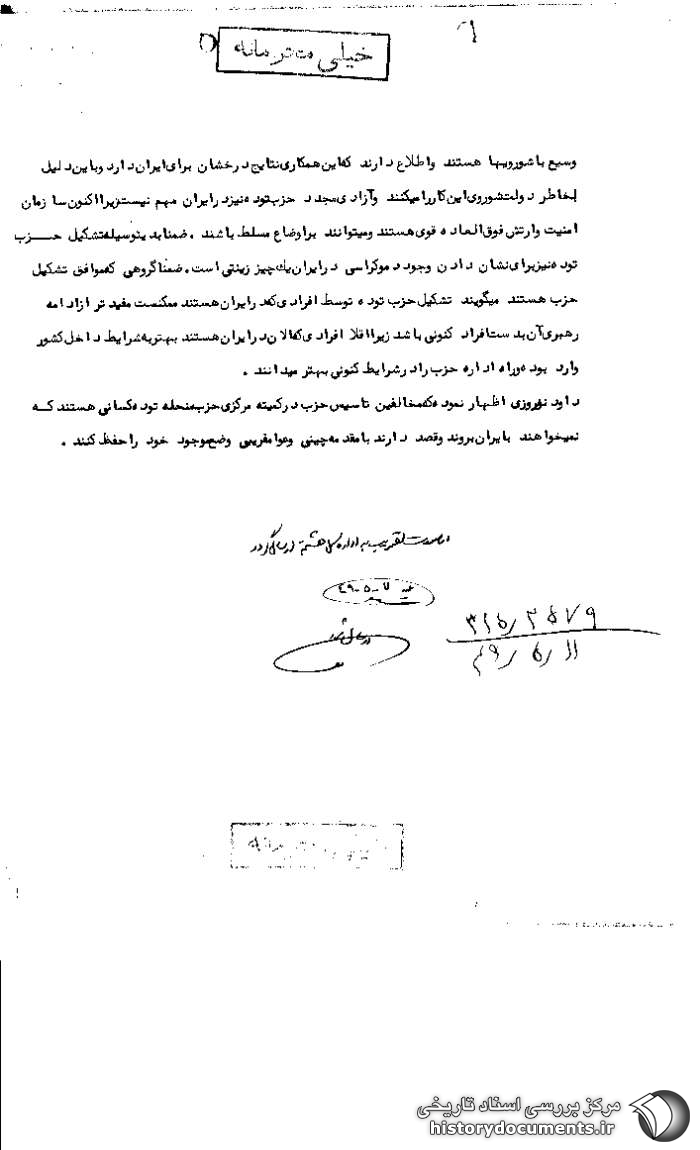 خیلی محرمانه
وسیع باشورویها هستند واطلاع دارند که این همکاری نتایج درخشان برای ایران دارد وباین دلیل
بخاطر دولت شوروی این کاررا میکنند وآزادی مجدد حزب توده نیزدرایران مهم نیست زیرا اکنون سازمان
امنیت وارتش فوق العاده قوی هستند ومیتوانند براوضاع مسلط باشند . ضمنا بدینوسیله تشکیل حزب
توده نیزبرای نشان دادن وجود دموکراسی درایران یک چیز زینتی است . ضمنا گروهی که موافق تشکیل
حزب هستند میگویند تشکیل حزب توده توسط افرادی که درایران هستند ممکنست مفید تر ازادامه
رهبری آن بدست افراد کنونی باشد زیرا اقلا افرادی که الان درایران هستند بهتربه شرایط داخل کشور
وارد بوده وراه اداره حزب رادرشرایط کنونی بهتر میدانند .
داود نوروزی اظهار نموده که مخالفین تاسیس حزب درکمیته مرکزی حزب منحله توده کسانی هستند که
نمیخواهند بایران بروند وقصد دارند بامقدمه چینی وعوامفریبی وضع موجود خود را حفظ کنند .
به اداره کل هشتم ارسال گردد
۴۹-۵-۷
۳۱۵/۲۵۷۹
۴۹/۵/۱۱
مرکز بررسی اسناد تاریخی
historydocuments.ir